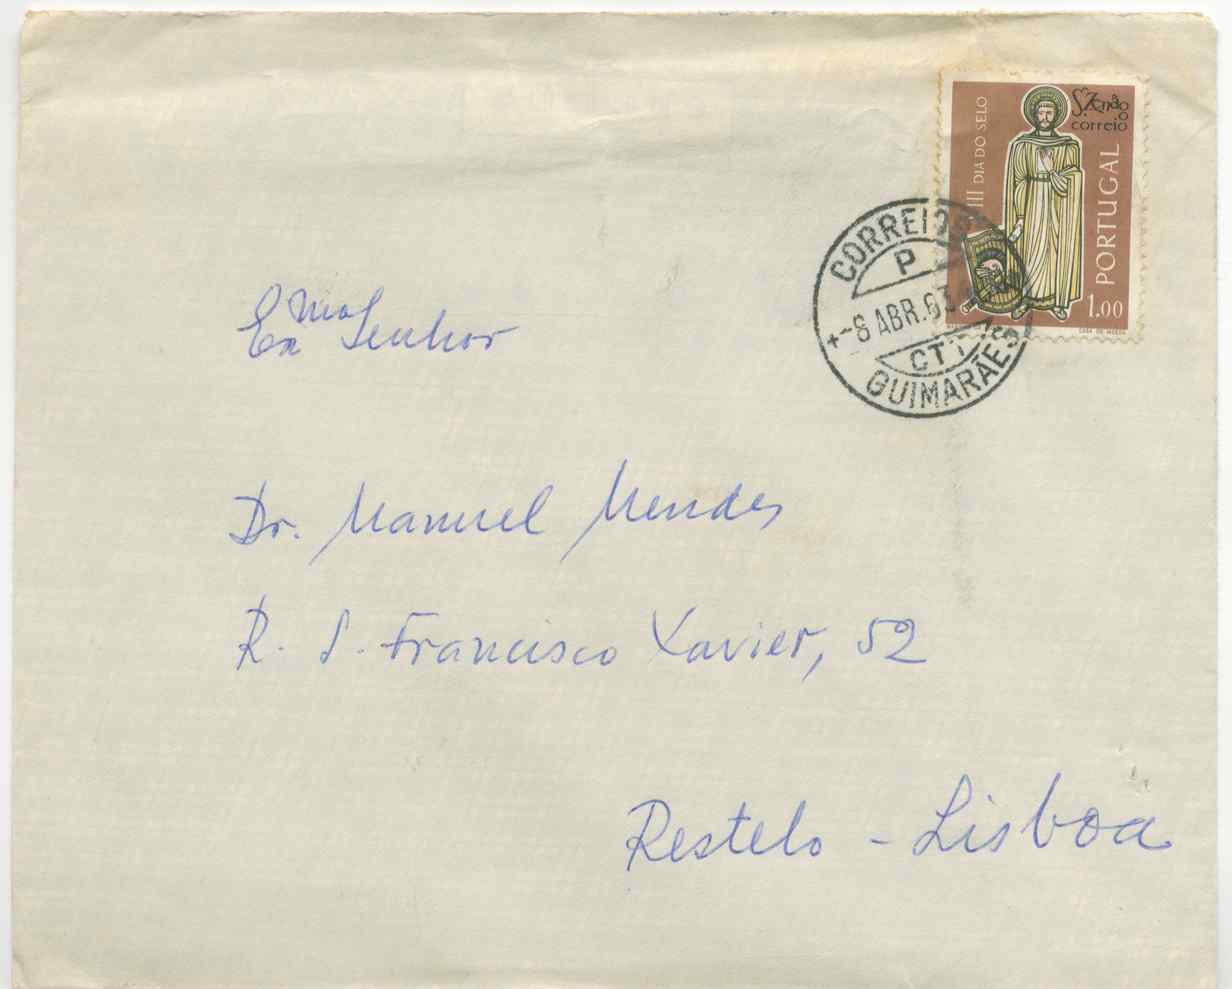 S. Zenão
o
correio
VIII DIA DO SELO
PORTUGAL
1.00
CASA DA MOEDA
CORREIOS
P
-8 ABR. 63
CTT
GUIMARÃES
Exmo Senhor
Dr. Manuel Mendes
R. S. Francisco Xavier, 52
Restelo - Lisboa